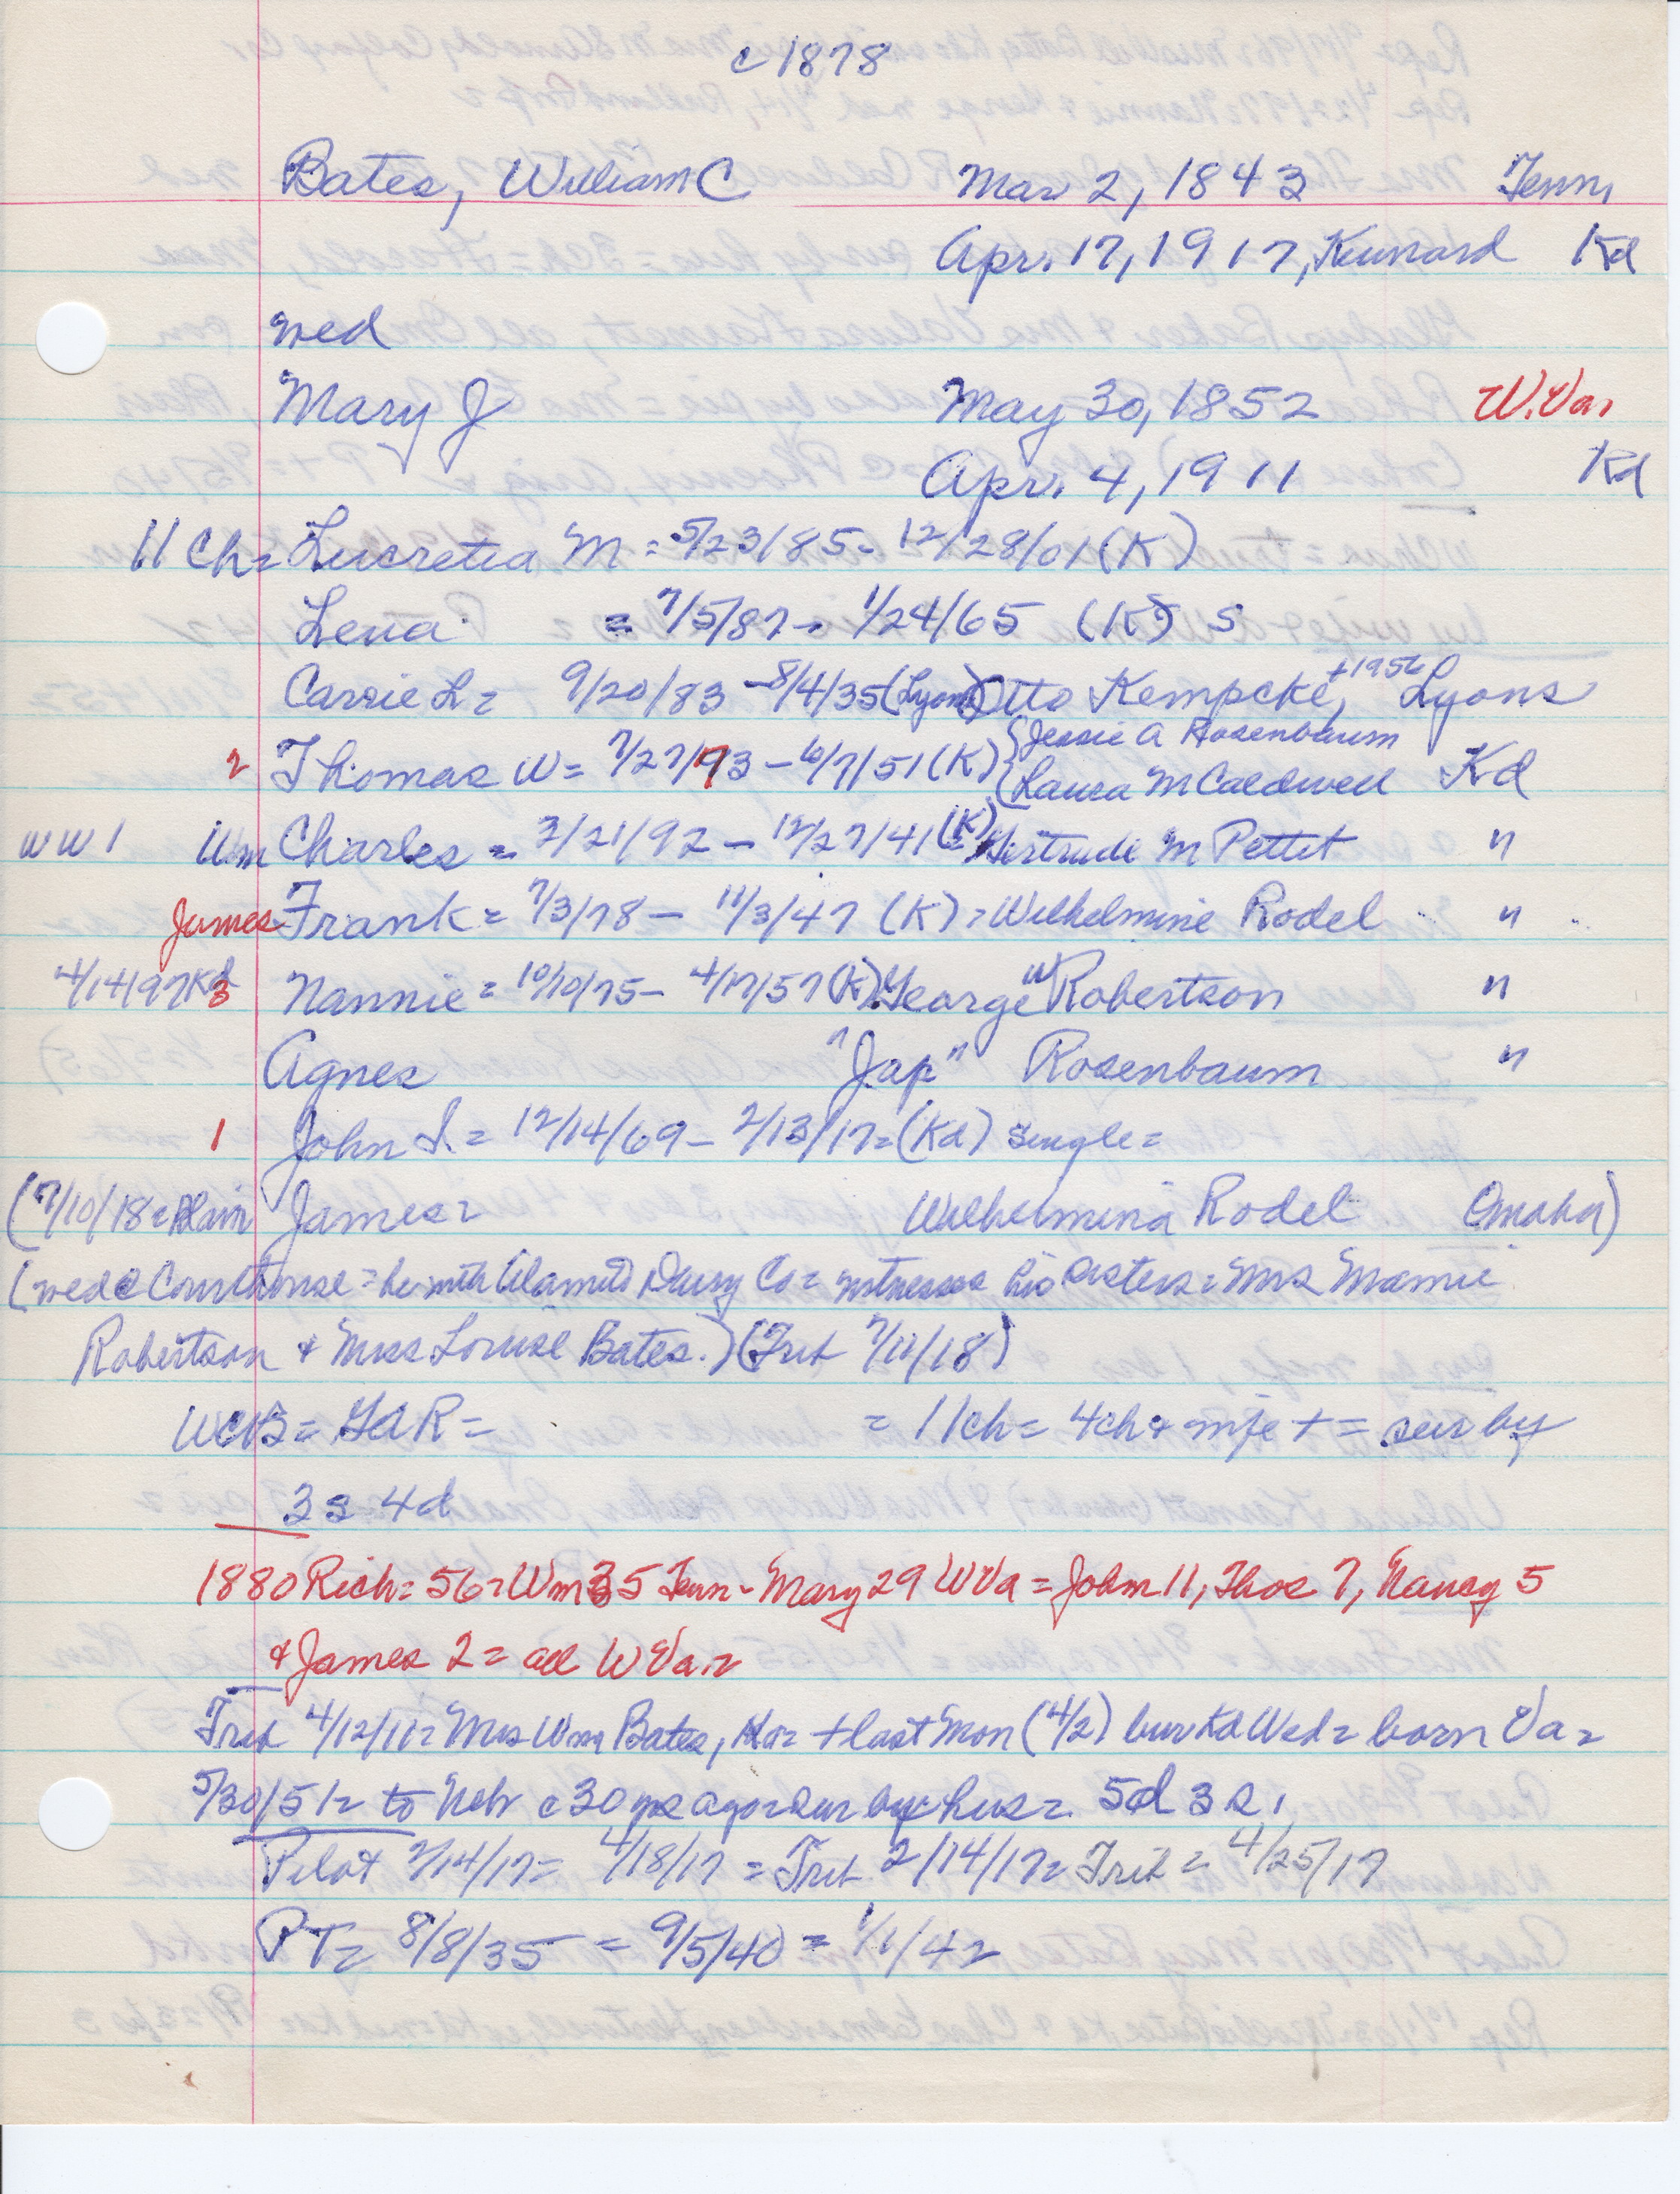 c 1878
Bates, William C Mar 2, 1843 Tenn,
Apr. 17, 1917, Kennard Kd
wed
Mary J May 30, 1852 W.Va,
Apr. 4, 1911 Kd
11 Ch= Lucretia M = 5/23/85- 12/28/01 (K)
Lena = 7/5/87- 1/24/65 (K) S
Carrie L = 9/20/83 -8/4/35 (Lyons) Otto Kempcke, +1956 Lyons
2 Thomas W = 7/27/73 - 6/7/51 (K) { Jessie A Rosenbaum
{ Laura M Caldwell Kd
WW1 Wm Charles = 3/21/92 - 12/27/41 (K) = Gertrude M Pettit "
James Frank = 7/3/78 - 11/3/47 (K) = Wilhelmine Rodel "
4/14/97 Kd 3 Nannie = 10/10/75- 4/17/57 (K) George W Robertson "
Agnes "Jap" Rosenbaum "
1 John S. = 12/14/69 - 2/13/17= (Kd) single=
(7/10/18= Blair James= Wilhelmina Rodel Omaha)
(wed @ Courthouse = he with Alamito Dairy Co = witnesses his sisters = Mrs Mamie
Robertson & Miss Louise Bates.) (Trib 7/11/18)
WCB = GAR = = 11ch = 4ch & wife + = sur by
3s 4d
1880 Rich = 56= Wm 35 Tenn - Mary 29 WVa = John 11, Thos 7, Nancy 5
& James 2 = all W Va =
Trib 4/12/11= Mrs Wm Bates, + last Mon (4/2) bur Kd Wed = born Va =
5/30/51= to Neb c 30 yrs ago= sur by hus = 5d 3s,
Pilot 2/14/17= 4/18/17 = Trib 2/14/17= Trib = 4/25/17
PT= 8/8/35 = 9/5/40 = 1/1/42